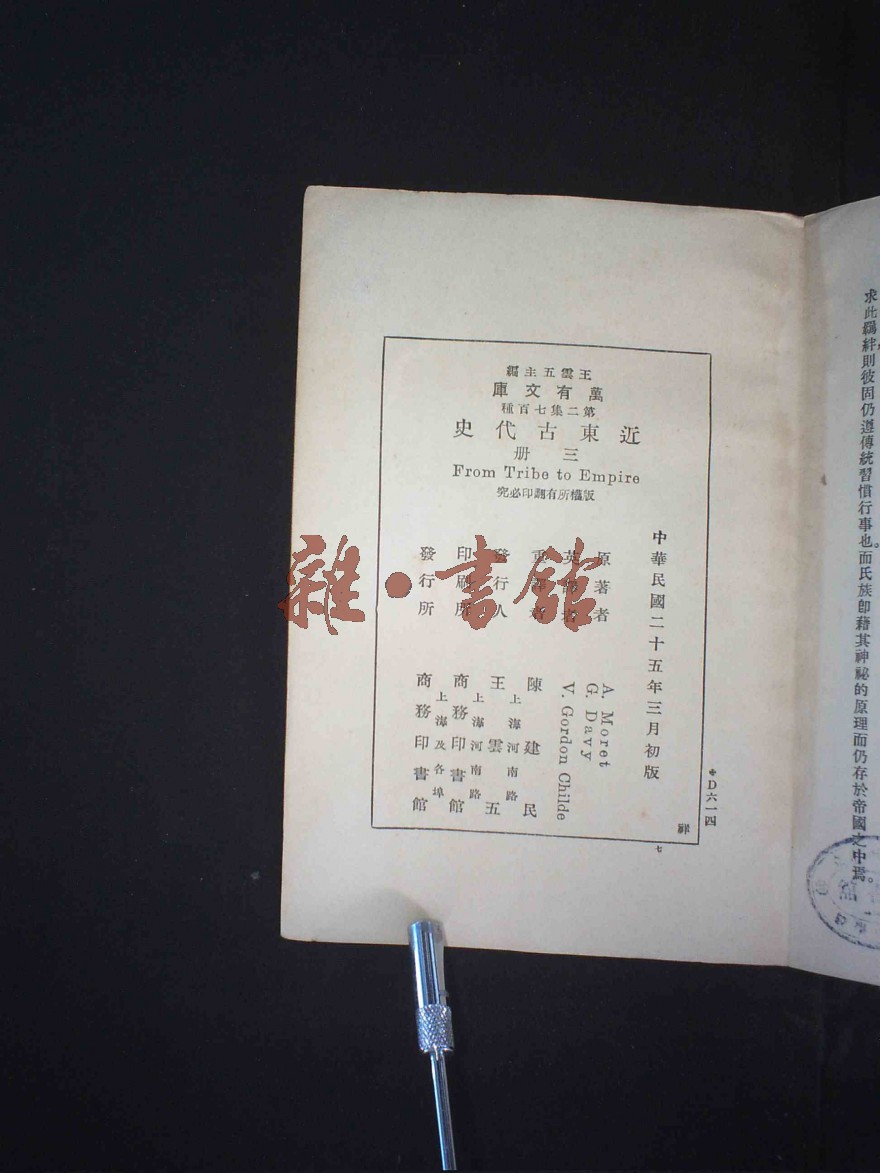 王雲五主編
萬有文庫
第二集七百種
近東古代史
三册
From Tribe to Empire
版權所有翻印必究
中華民國二十五年三月初版
原著者 A. Moret
G. Davy
英譯者 V. Gordon Childe
重譯者 陳建民
發行人 王雲五
上海河南路
印刷所 商務印書館
上海河南路
發行所 商務印書館
上海及各埠
祥
七
D六一四
求此羈絆則彼固仍遵傳統習慣行事也。而氏族卽藉其神祕的原理而仍存於帝國之中焉。
雜·書館